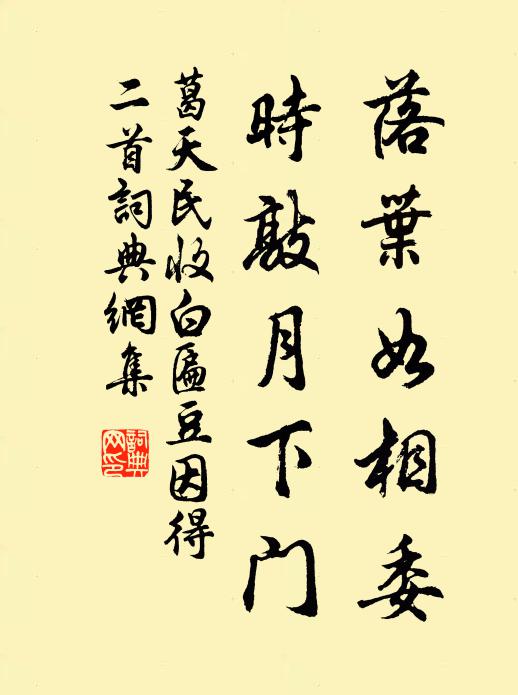 落葉如相委
時敲月下門
葛天民收白匾豆因得
二首詞典網集
詞典
网印